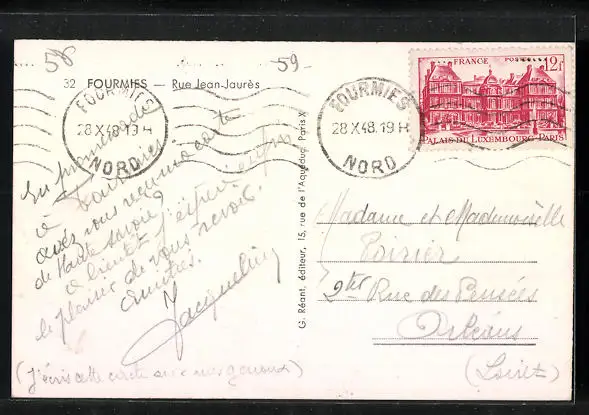 58
59-
32 FOURMIES — Rue Jean-Jaurès
FOURMIES
28 X 48. 19 H
NORD
FOURMIES
28 X 48. 19 H
NORD
FRANCE POSTES 12F
PALAIS DU LUXEMBOURG-PARIS
En promenade
à Fourmies
avez vous reçu ma carte
de Haute Savoie?
à bientôt j'espère enfin
le plaisir de vous revoir.
Amitiés.
Jacqueline
(J'écris cette carte sur mes genoux)
G. Réant, éditeur, 15, rue de l'Aqueduc, Paris X
Madame et Mademoiselle
Poirier
Rue des Pensées
Orléans
(Loiret)